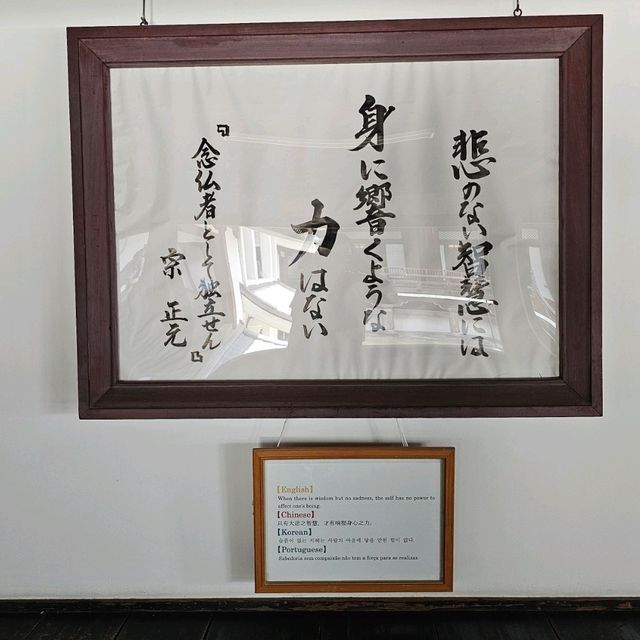 悲のない智慧には
身に響くような
力はない
『念仏者として独立せん』
宗 正元
【English】
When there is wisdom but no sadness, the self has no power to
affect one's being.
【Chinese】
只有大悲之智慧，才有响彻身心之力。
【Korean】
슬픔이 없는 지혜는 사람의 마음에 닿을 만한 힘이 없다.
【Portuguese】
Sabedoria sem compaixão não tem a força para se realizar.